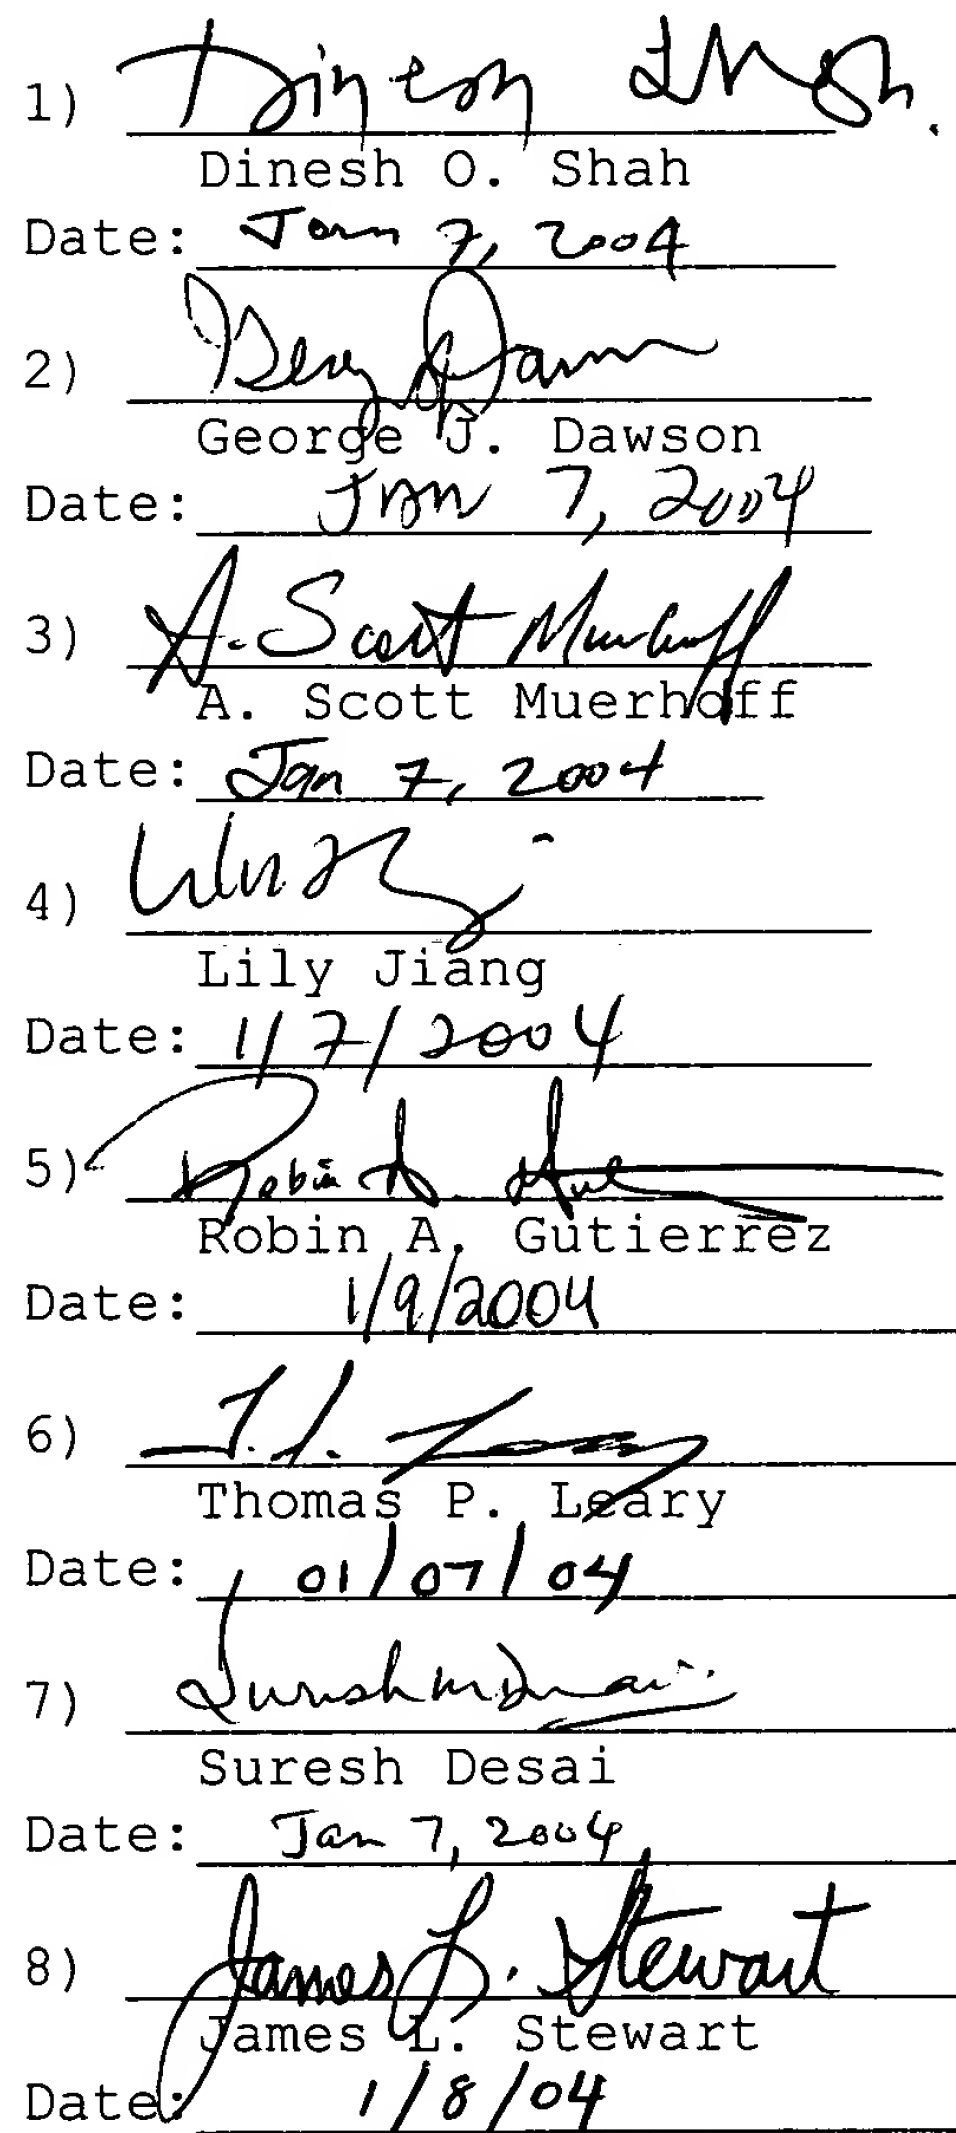 1) Dinesh Shah.
Dinesh O. Shah
Date: Jan 7, 2004
2) George J Dawson
George J. Dawson
Date: Jan 7, 2004
3) A. Scott Muerhoff
A. Scott Muerhoff
Date: Jan 7, 2004
4)
Lily Jiang
Date: 1/7/2004
5) Robin A.
Robin A. Gutierrez
Date: 1/9/2004
6) Leary
Thomas P. Leary
Date: 01/07/04
7) Suresh M Desai
Suresh Desai
Date: Jan 7, 2004
8) James L. Stewart
James L. Stewart
Date: 1/8/04